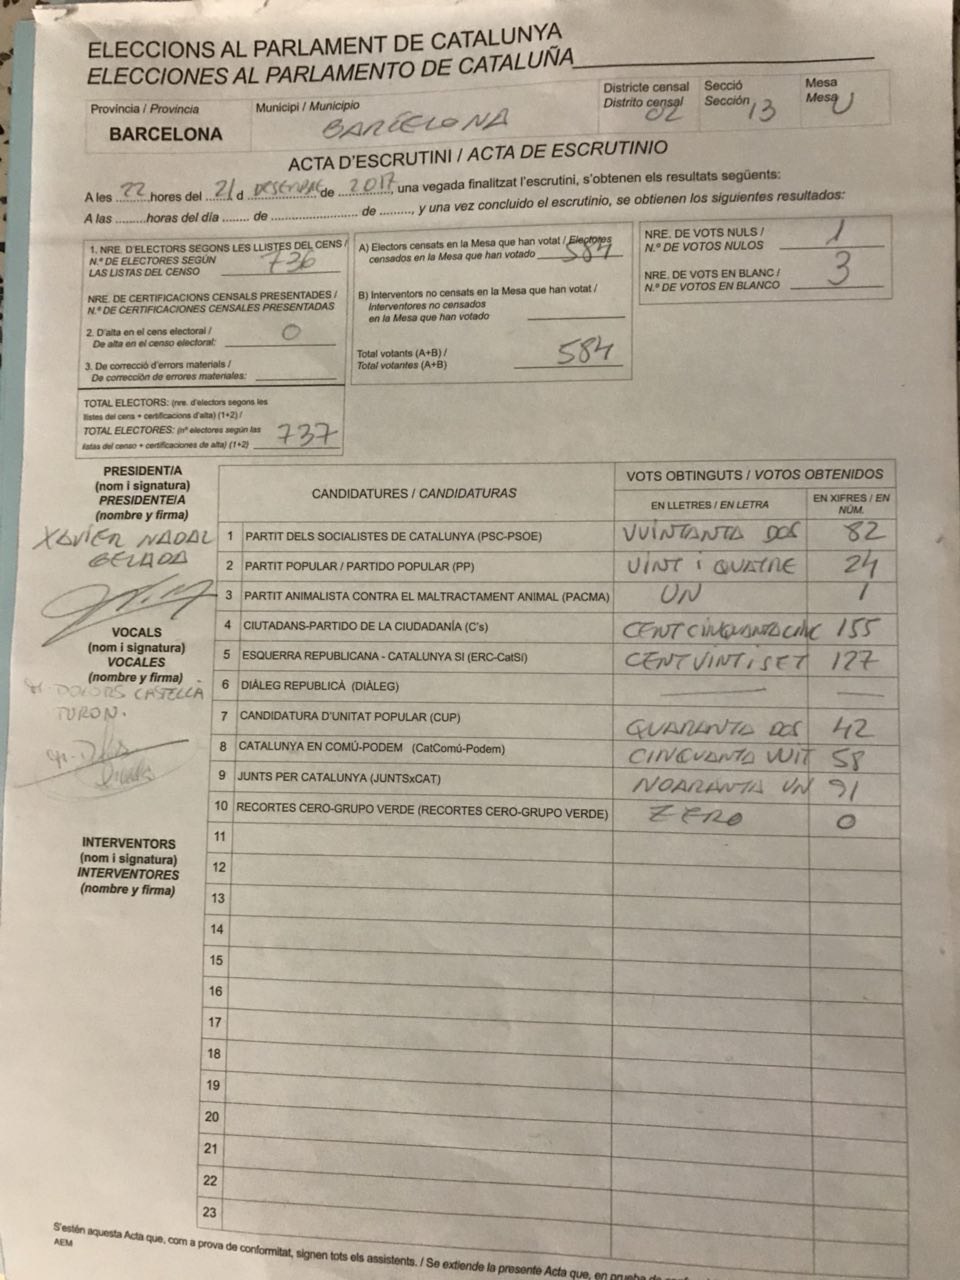 ELECCIONS AL PARLAMENT DE CATALUNYA
ELECCIONES AL PARLAMENTO DE CATALUÑA
Provincia / Provincia
BARCELONA
Municipi / Municipio
BARCELONA
Districte censal
Distrito censal
02
Secció
Sección
13
Mesa
Mesa
U
ACTA D'ESCRUTINI / ACTA DE ESCRUTINIO
A les 22 hores del 21 d DESEMBRE de 2017, una vegada finalitzat l'escrutini, s'obtenen els resultats següents:
A las .........horas del día ........ de .......................... de ........., y una vez concluido el escrutinio, se obtienen los siguientes resultados:
1. NRE. D'ELECTORS SEGONS LES LLISTES DEL CENS /
N.º DE ELECTORES SEGÚN
LAS LISTAS DEL CENSO 736
NRE. DE CERTIFICACIONS CENSALS PRESENTADES /
N.º DE CERTIFICACIONES CENSALES PRESENTADAS
2. D'alta en el cens electoral /
De alta en el censo electoral: 0
3. De correcció d'errors materials /
De corrección de errores materiales:
TOTAL ELECTORS: (nre. d'electors segons les
llistes del cens + certificacions d'alta) (1+2) /
TOTAL ELECTORES: (nº electores según las
listas del censo + certificaciones de alta) (1+2) 737
A) Electors censats en la Mesa que han votat / Electores
censados en la Mesa que han votado 584
B) Interventors no censats en la Mesa que han votat /
Interventores no censados
en la Mesa que han votado
Total votants (A+B) /
Total votantes (A+B) 584
NRE. DE VOTS NULS /
N.º DE VOTOS NULOS 1
NRE. DE VOTS EN BLANC /
N.º DE VOTOS EN BLANCO 3
PRESIDENT/A
(nom i signatura)
PRESIDENTE/A
(nombre y firma)
XAVIER NADAL
GELADA
VOCALS
(nom i signatura)
VOCALES
(nombre y firma)
DOLORS CASTELLA
TURON.
INTERVENTORS
(nom i signatura)
INTERVENTORES
(nombre y firma)
CANDIDATURES / CANDIDATURAS
VOTS OBTINGUTS / VOTOS OBTENIDOS
EN LLETRES / EN LETRA
EN XIFRES / EN NÚM.
1 PARTIT DELS SOCIALISTES DE CATALUNYA (PSC-PSOE) VUINTANTA DOS 82
2 PARTIT POPULAR / PARTIDO POPULAR (PP) VINT I QUATRE 24
3 PARTIT ANIMALISTA CONTRA EL MALTRACTAMENT ANIMAL (PACMA) UN 1
4 CIUTADANS-PARTIDO DE LA CIUDADANÍA (C's) CENT CINQUANTA CINC 155
5 ESQUERRA REPUBLICANA - CATALUNYA SI (ERC-CatSí) CENT VINT I SET 127
6 DIÀLEG REPUBLICÀ (DIÀLEG) — —
7 CANDIDATURA D'UNITAT POPULAR (CUP) QUARANTA DOS 42
8 CATALUNYA EN COMÚ-PODEM (CatComú-Podem) CINCUANTA VUIT 58
9 JUNTS PER CATALUNYA (JUNTSxCAT) NOARANTA UN 91
10 RECORTES CERO-GRUPO VERDE (RECORTES CERO-GRUPO VERDE) ZERO 0
11
12
13
14
15
16
17
18
19
20
21
22
23
S'estén aquesta Acta que, com a prova de conformitat, signen tots els assistents. / Se extiende la presente Acta que, en prueba de
AEM